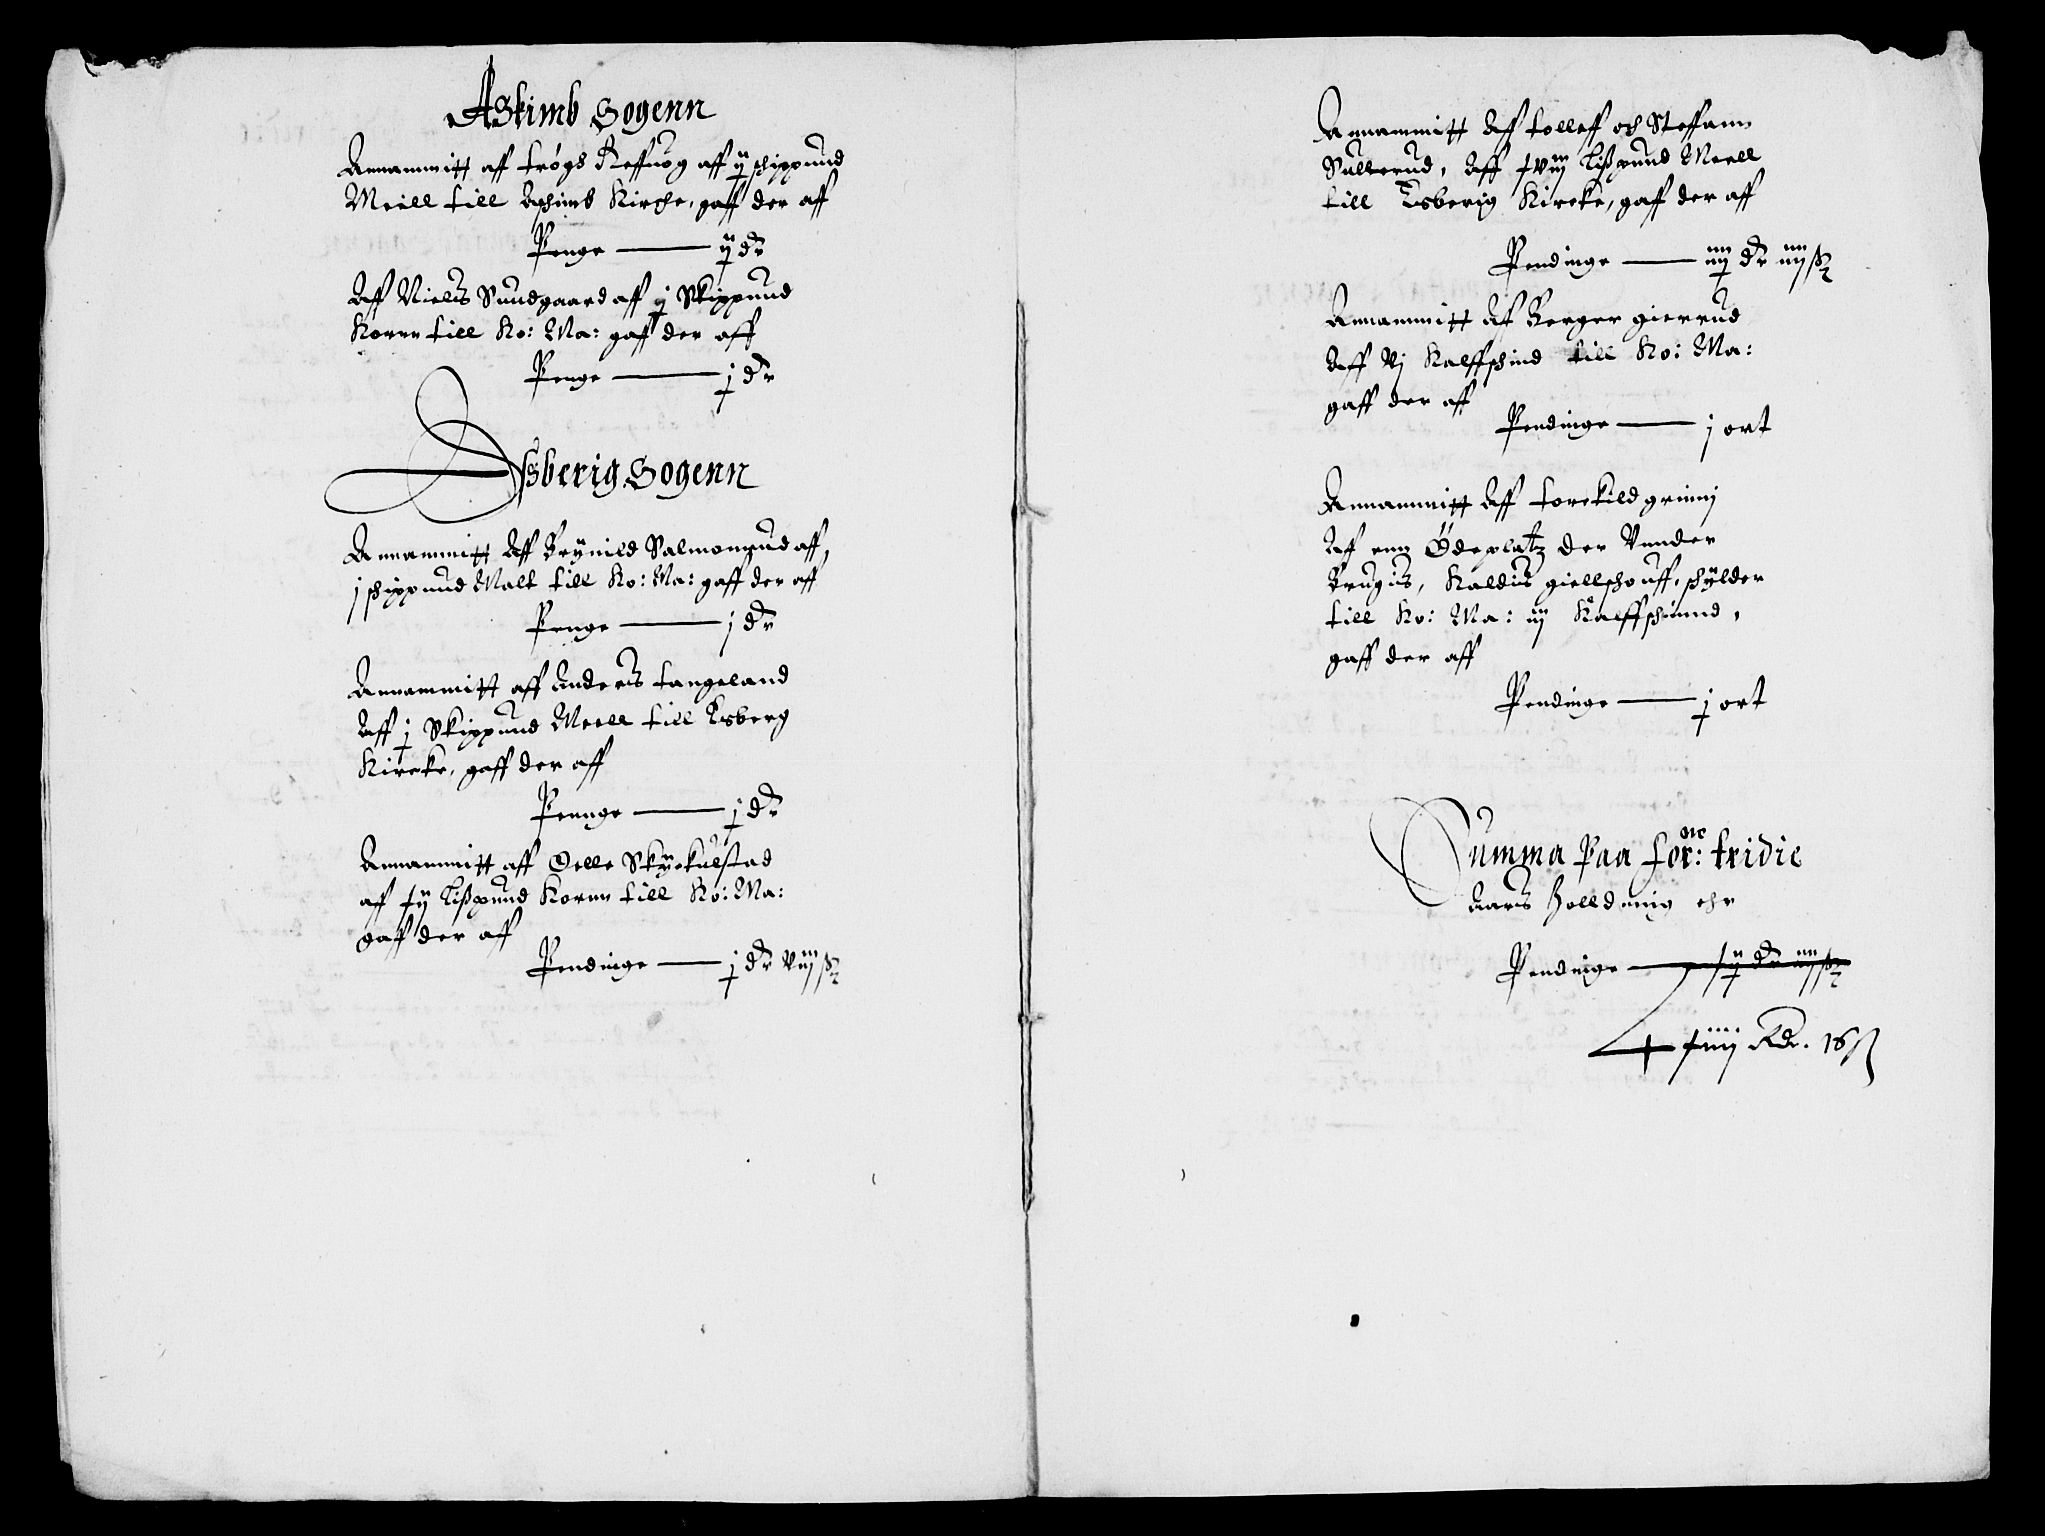 Askimb Sogenn
Annammitt aff trøgs Reffuog aff ij schippund
Meell till Aschimb Kirche, gaff der aff
Penge — ij dr
Aff Niels Sundgaard aff j Skippund
Kornn till Ko: Ma: gaff der aff
Penge — j dr
Essberig Sogenn
Annammitt Aff Brynild Salmonrud aff,
j schippund Malt till Ko: Ma: gaff der aff
Penge — j dr
Annammitt aff Anders tangeland
Aff j Skippund Meell till Esberg
Kircke, gaff der aff
Pennge — j dr
Annammitt aff Oelle Skyckulstad
aff xij Lißpund Kornn till Ko: Ma:
gaff der aff
Pendinge — j dr viij ß
Annammitt Aff tolleff och Steffann
Sullerud, Aff xviij Lißpund Meell
till Esberig Kircke, gaff der aff
Pendinge — iiij dr iiij ß
Annammitt Af Berger gierrud
Aff vj Kalffschind till Ko: Ma:
gaff der aff
Pendinge — j ort
Annammitt Aff torckild grimj
Aff enn Ødeplatz der Vnnder
Brugis, Kaldis giellschouff, schylder
till Ko: Ma: iij Kalffschinnd,
gaff der aff
Pendinge — j ort
Summa Paa for:ne tridie
Aars holldning ehr
Pendinge — xij dr iiij ß
xiiij Rdr. 16 ß